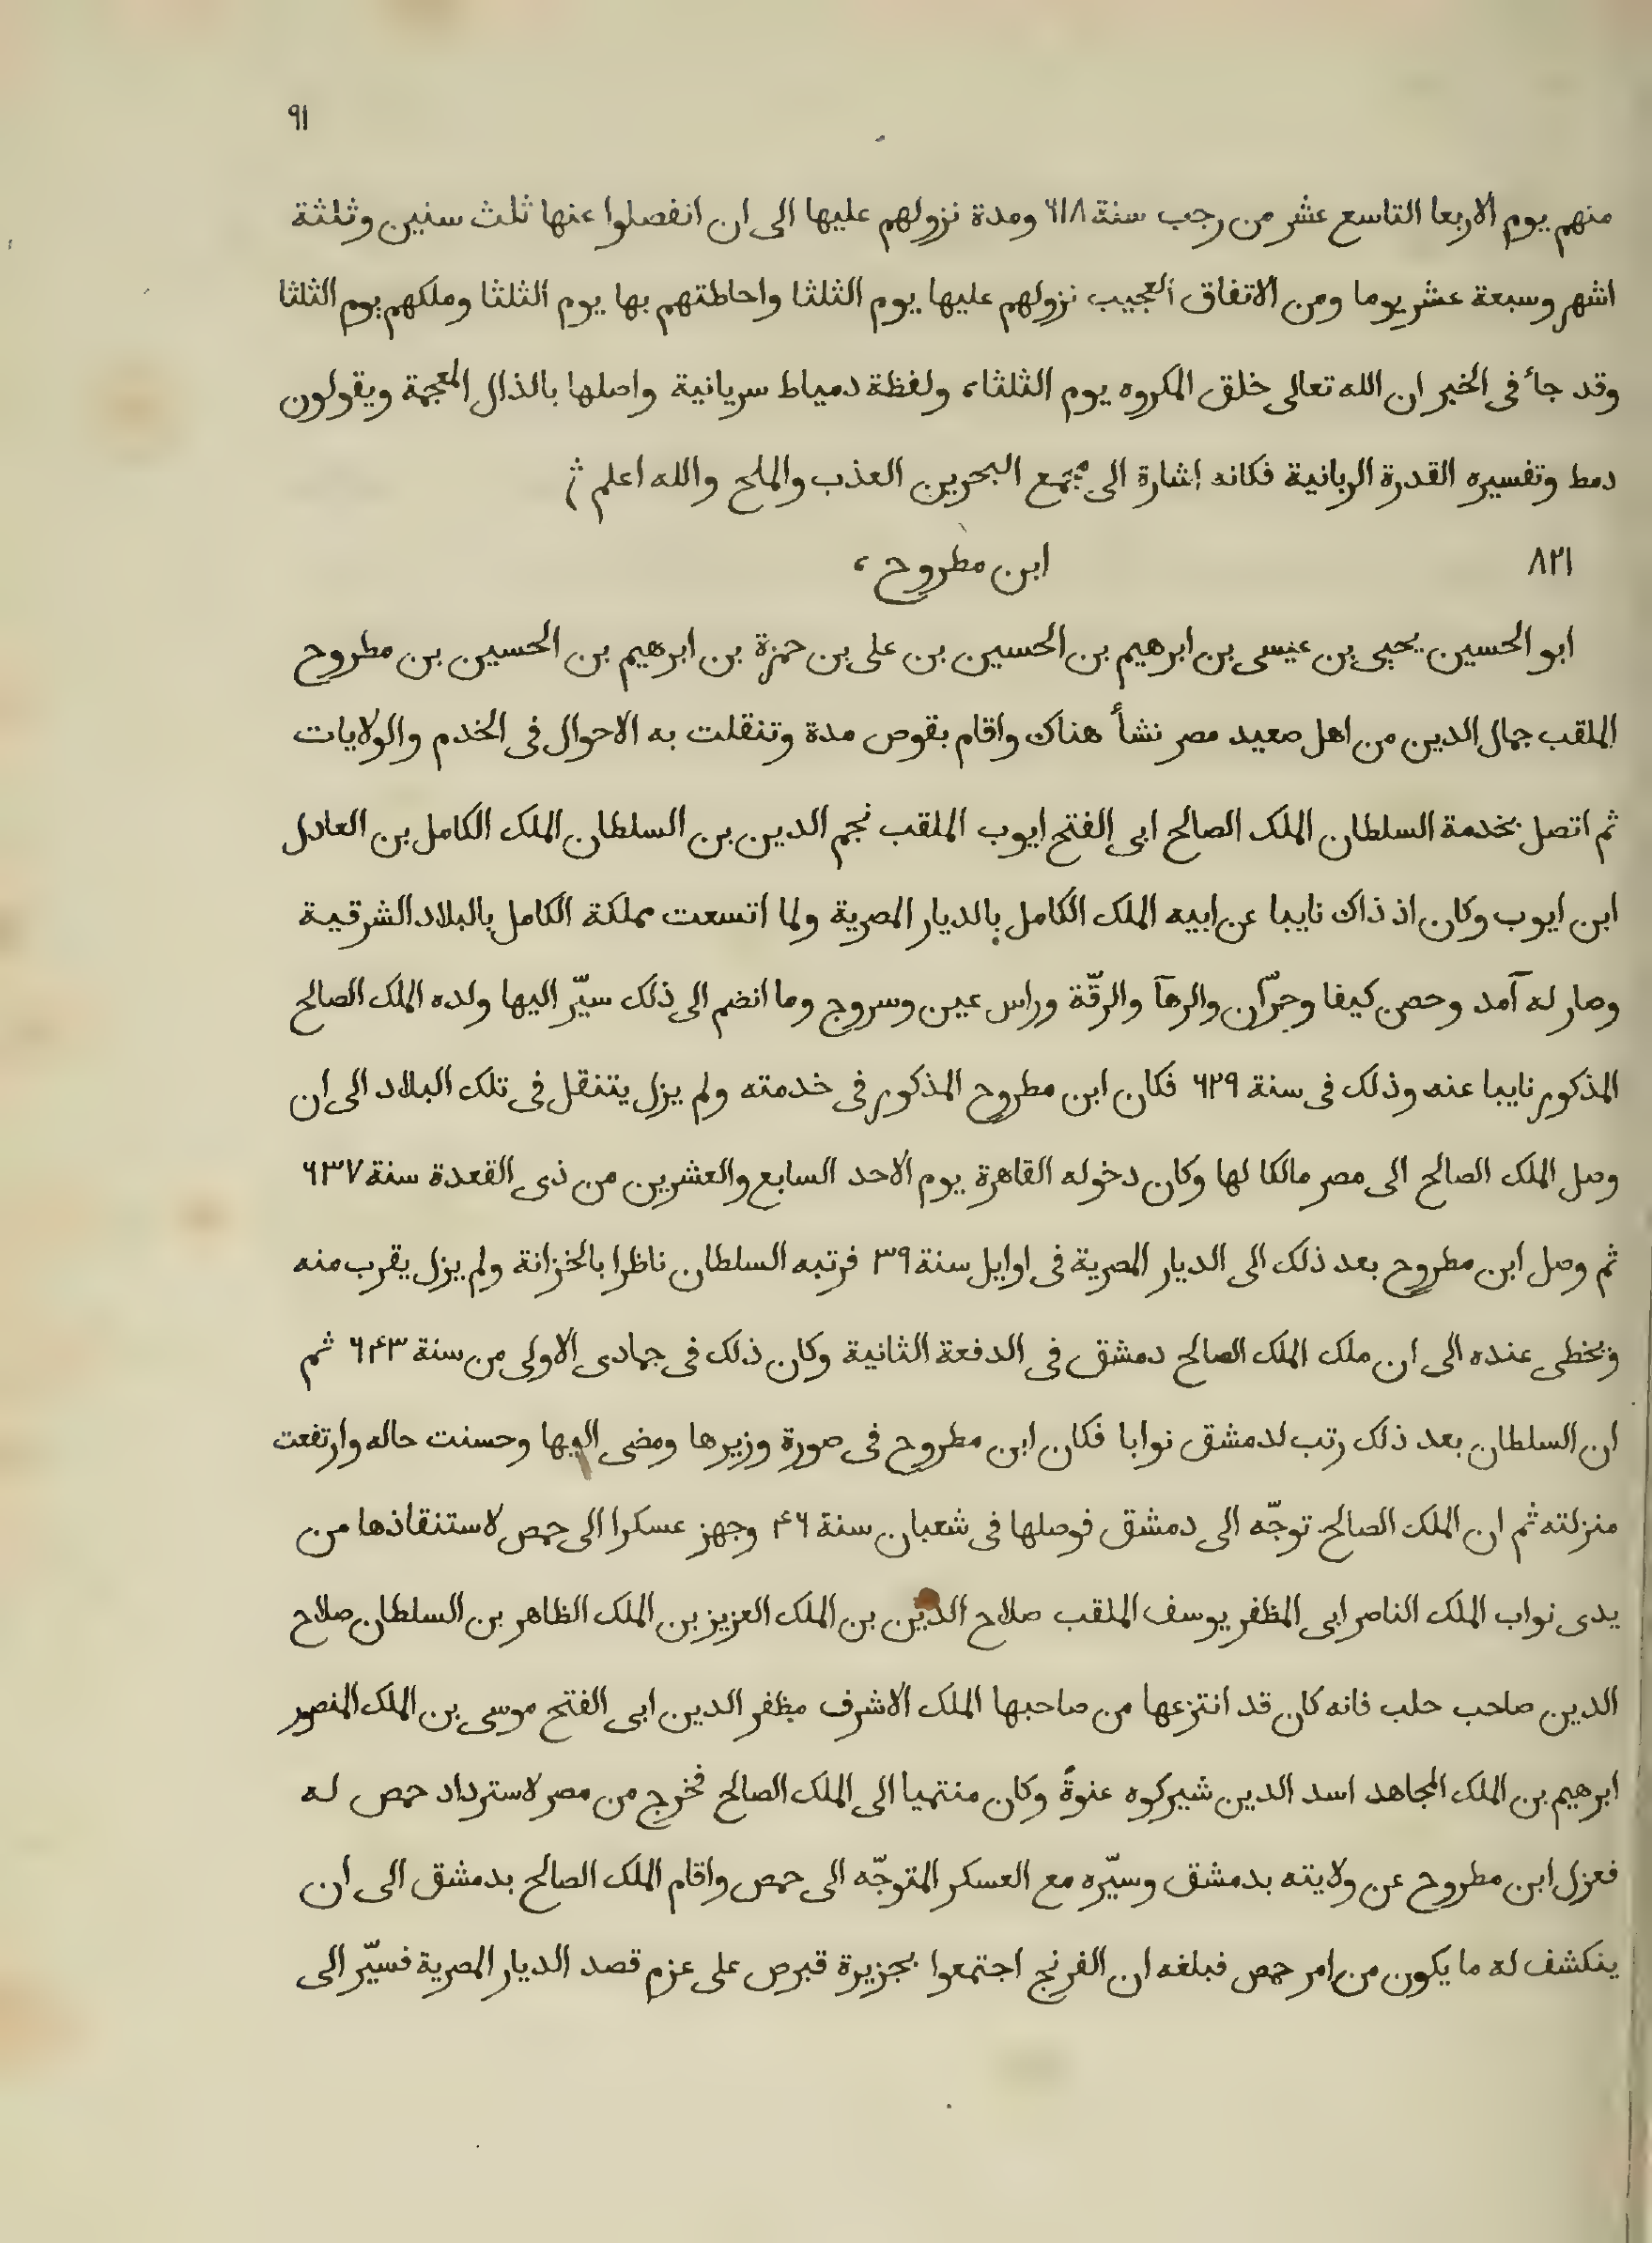 ٩١
منهم يوم الاربعا التاسع عشر من رجب سنة ٦١٨ ومدة نزولهم عليها الى ان انفصلوا عنها ثلث سنين وثلثة
اشهر وسبعة عشر يوما ومن الاتفاق العجيب نزولهم عليها يوم الثلثا واحاطتهم بها يوم الثلثا وملكهم يوم الثلثا
وقد جاٴ فى الخبر ان الله تعالى خلق المكروه يوم الثلثاء ولفظة دمياط سريانية واصلها بالذال المعجمة ويقولون
دمط وتفسيره القدرة الربانية فكانه اشارة الى مجمع البحرين العذب والملح والله اعلم ؞
٨٢١ ابن مطروح ،
ابو الحسين يحيى بن عيسى بن ابرهيم بن الحسين بن على بن حمزة بن ابرهيم بن الحسين بن مطروح
الملقب جمال الدين من اهل صعيد مصر نشأ هناك واقام بقوص مدة وتنقلت به الاحوال فى الخدم والولايات
ثم اتصل بخدمة السلطان الملك الصالح ابى الفتح ايوب الملقب نجم الدين بن السلطان الملك الكامل بن العادل
ابن ايوب وكان اذ ذاك نايبا عن ابيه الملك الكامل بالديار المصرية ولما اتسعت مملكة الكامل بالبلاد الشرقية
وصار له آمد وحصن كيفا وحرّان والرهآ والرقّة وراس عين وسروج وما انضم الى ذلك سيّر اليها ولده الملك الصالح
المذكور نايبا عنه وذلك فى سنة ٦٢٩ فكان ابن مطروح المذكور فى خدمته ولم يزل يتنقل فى تلك البلاد الى ان
وصل الملك الصالح الى مصر مالكا لها وكان دخوله القاهرة يوم الاحد السابع والعشرين من ذى القعدة سنة ٦٣٧
ثم وصل ابن مطروح بعد ذلك الى الديار المصرية فى اوايل سنة ٣٩ فرتبه السلطان ناظرا بالخزانة ولم يزل يقرب منه
ويخطى عنده الى ان ملك الملك الصالح دمشق فى الدفعة الثانية وكان ذلك فى جمادى الاولى من سنة ٦٤٣ ثم
ان السلطان بعد ذلك رتب لدمشق نوابا فكان ابن مطروح فى صورة وزيرها ومضى اليها وحسنت حاله وارتفعت
منزلته ثم ان الملك الصالح توجّه الى دمشق فوصلها فى شعبان سنة ٤٦ وجهز عسكرا الى حمص لاستنقاذها من
يدى نواب الملك الناصر ابى المظفر يوسف الملقب صلاح الدين بن الملك العزيز بن الملك الظاهر بن السلطان صلاح
الدين صاحب حلب فانه كان قد انتزعها من صاحبها الملك الاشرف مظفر الدين ابى الفتح موسى بن الملك المنصور
ابرهيم بن الملك المجاهد اسد الدين شيركوه عنوةً وكان منتميا الى الملك الصالح فخرج من مصر لاسترداد حمص له
فعزل ابن مطروح عن ولايته بدمشق وسيّره مع العسكر المتوجّه الى حمص واقام الملك الصالح بدمشق الى ان
ينكشف له ما يكون من امر حمص فبلغه ان الفرنج اجتمعوا بجزيرة قبرص على عزم قصد الديار المصرية فسيّر الى